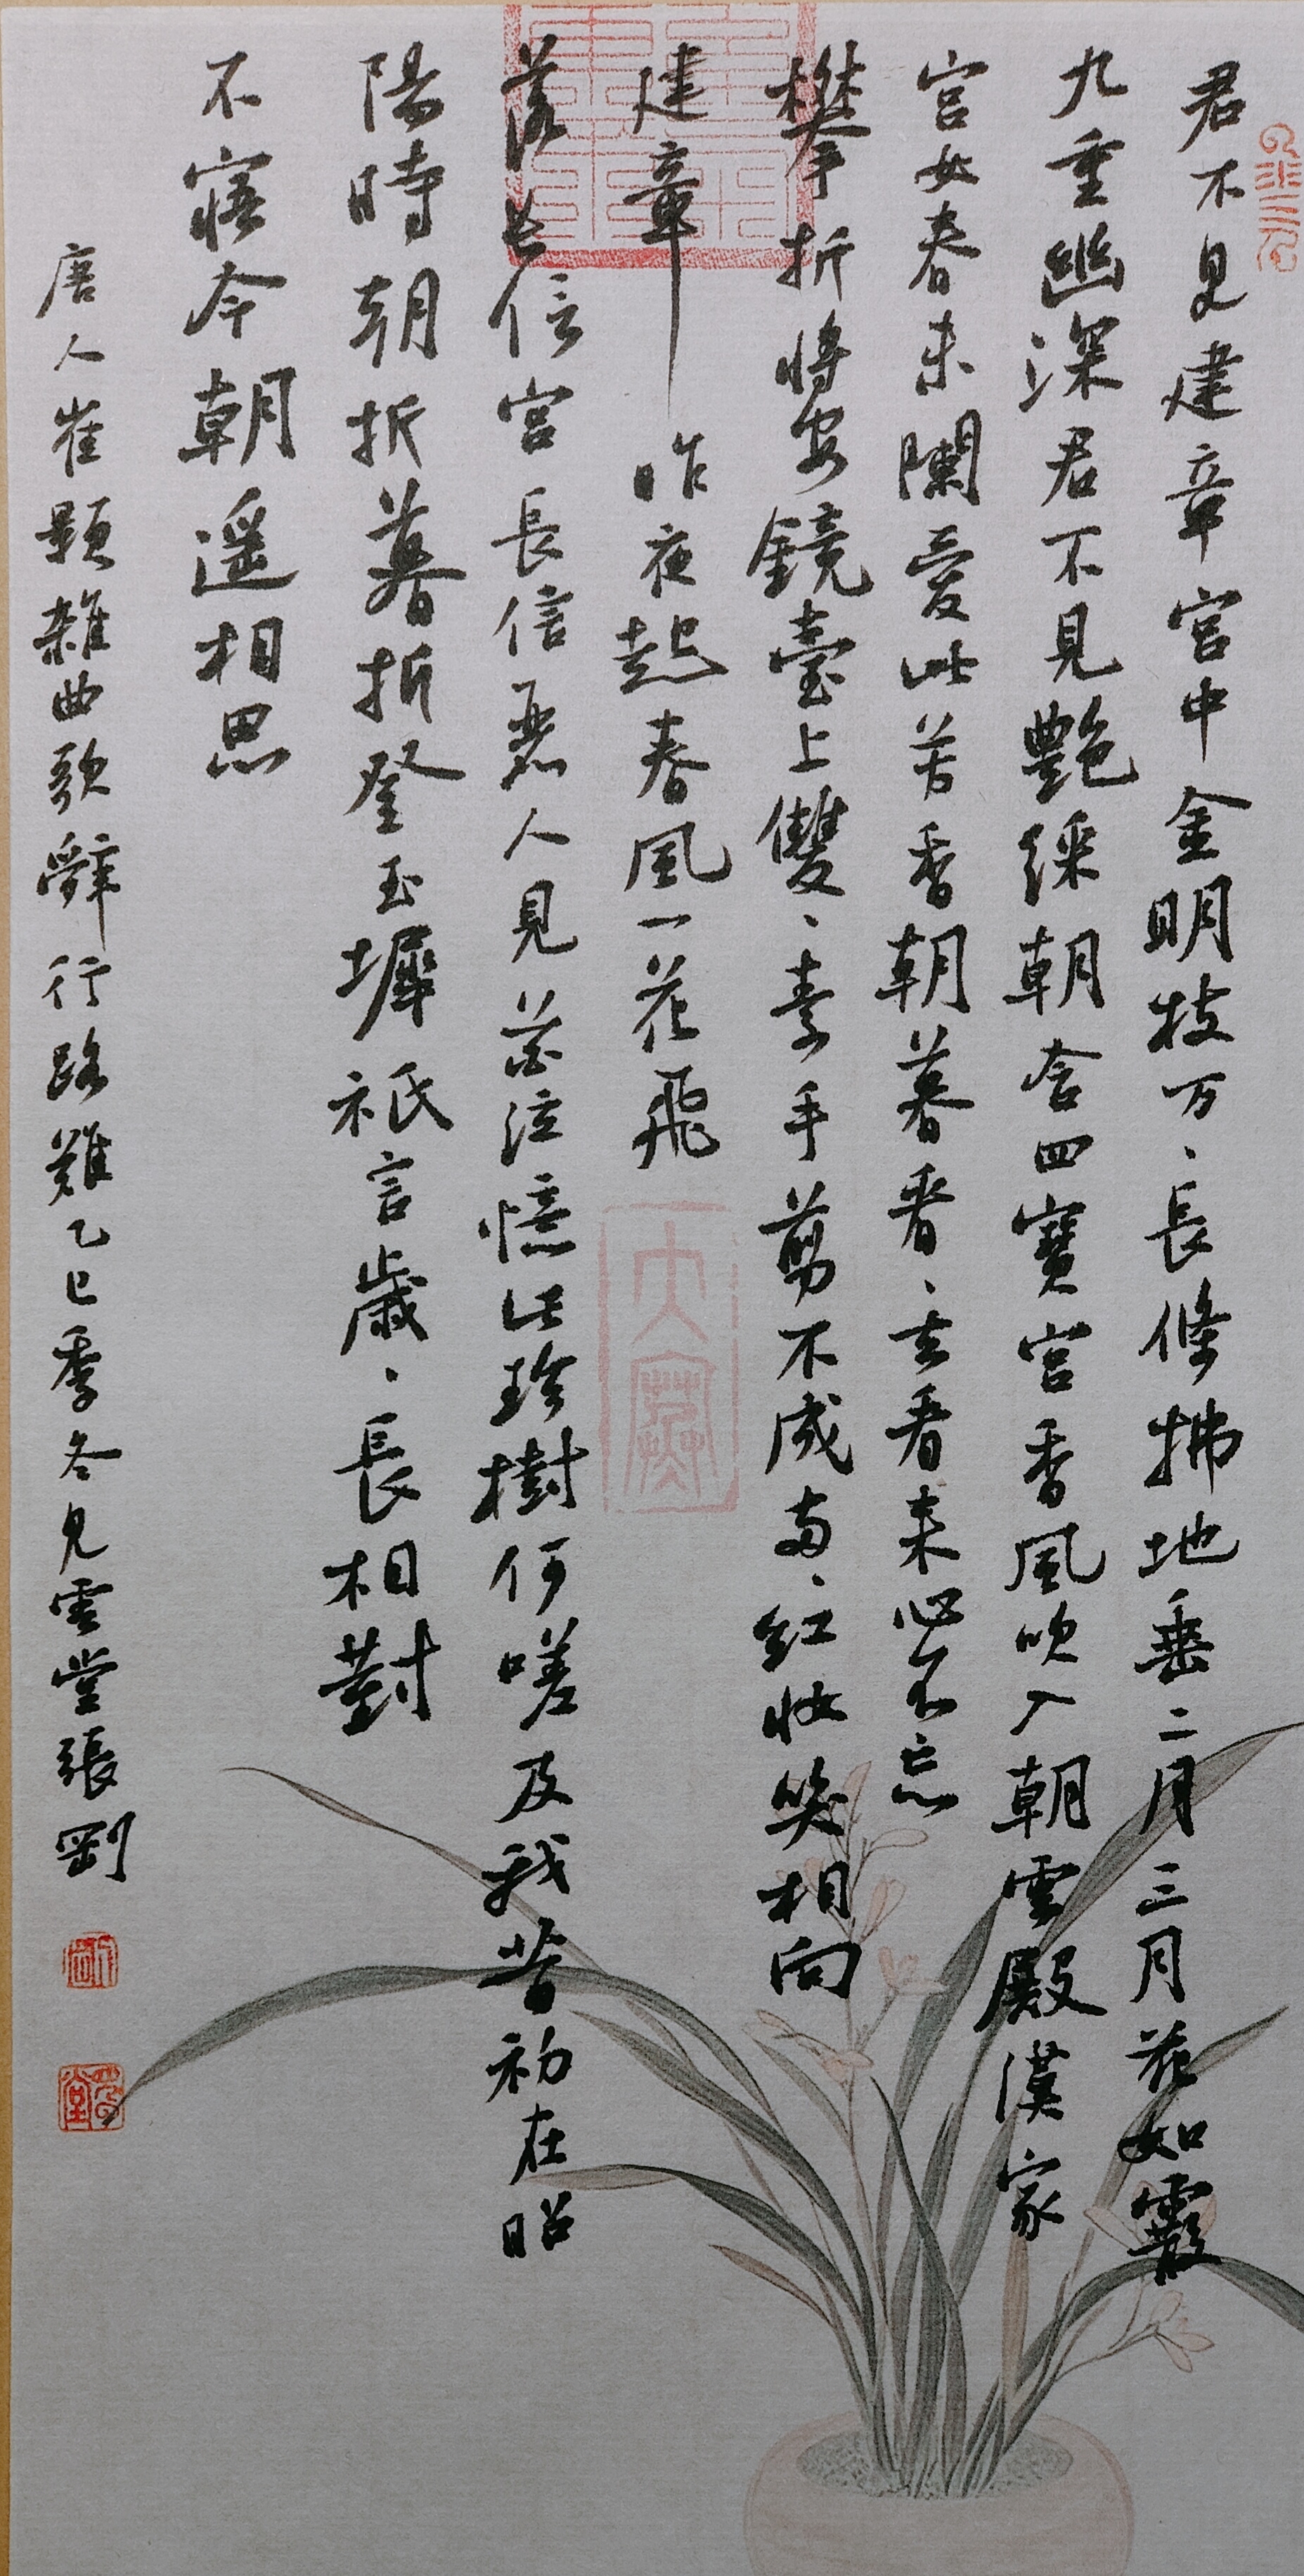 君不見建章宮中金明枝万、長條拂地垂二月三月花如霰
九重幽深君不見艶綵朝含四寶宮香風吹入朝雲殿漢家
宮女春未闌愛此芳香朝暮看、去看来心不忘
攀折將安鏡臺上雙、素手剪不成兩、紅妝笑相向
建章昨夜起春風一花飛
落長信宮長信麗人見花泣憶此珍樹何嗟及我昔初在昭
陽時朝折暮折登玉墀祗言歲、長相對
不寤今朝遥相思
唐人崔顥雜曲歌辭行路難乙巳季冬見雲堂張剛